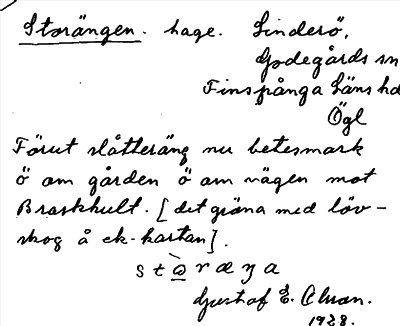 Storängen. hage. Sinderö,
Godegårds sn
Finspånga Läns hd
Ögl
Förut slåtteräng nu betesmark
ö om gården ö om vägen mot
Braskhult. [det gröna med löv-
skog å ek-kartan].
Gustaf E.
1928.